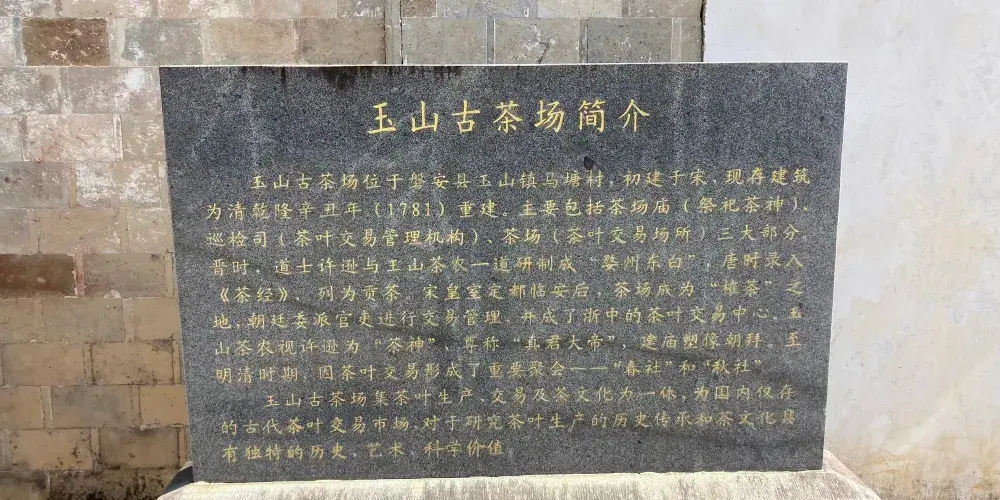 玉山古茶场简介
玉山古茶场位于磐安县玉山镇马塘村，初建于宋，现存建筑
为清乾隆辛丑年（1781）重建。主要包括茶场庙（祭祀茶神）、
巡检司（茶叶交易管理机构）、茶场（茶叶交易场所）三大部分。
晋时，道士许逊与玉山茶农一道研制成“婺州东白”，唐时录入
《茶经》，列为贡茶。宋皇室定都临安后，茶场成为“榷茶”之
地，朝廷委派官吏进行交易管理，并成了浙中的茶叶交易中心。玉
山茶农视许逊为“茶神”，尊称“真君大帝”，建庙塑像朝拜。至
明清时期，因茶叶交易形成了重要聚会——“春社”和“秋社”
玉山古茶场集茶叶生产、交易及茶文化为一体，为国内仅存
的古代茶叶交易市场，对于研究茶叶生产的历史传承和茶文化具
有独特的历史、艺术、科学价值。